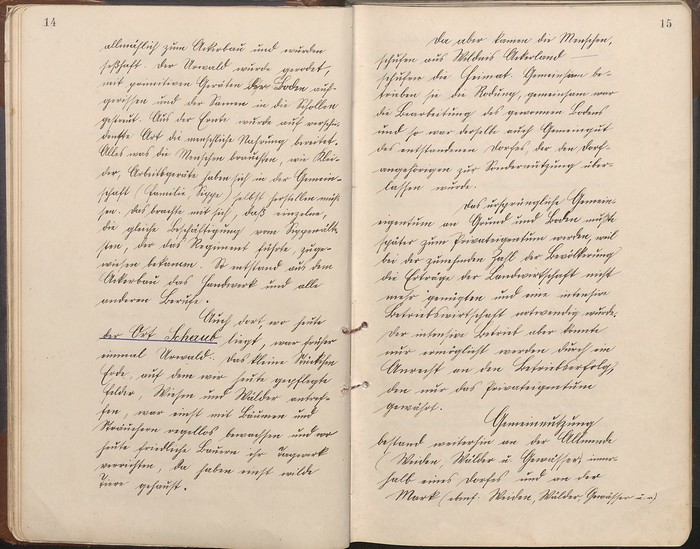 14
allmählich zum Ackerbau und wurden
seßhaft. Der Urwald wurde gerodet,
mit primitiven Geräten der Boden auf-
gerissen und der Samen in die Schollen
gestreut. Aus der Ernte wurde auf verschie-
denste Art die menschliche Nahrung bereitet.
Alles was die Menschen brauchten, wie Klei-
der, Arbeitsgeräte haben sich in der Gemein-
schaft (Familie, Sippe) selbst herstellen müs-
sen. Das brachte mit sich, daß einzelne,
die gleiche Beschäftigung vom Sippenälte-
sten, der das Regiment führte, zuge-
wiesen bekamen. So entstand aus dem
Ackerbau das Handwerk und alle
anderen Berufe.
Auch dort, wo heute
der Ort Schaub liegt, war früher
einmal Urwald. Das kleine Stückchen
Erde, auf dem wir heute gepflegte
Felder, Wiesen und Wälder antref-
fen, war einst mit Bäumen und
Sträuchern regellos bewachsen und wo
heute friedliche Bauern ihr Tagwerk
verrichten, da haben einst wilde
Tiere gehaust.
15
Da aber kamen die Menschen,
schufen aus Wildnis Ackerland —
schufen die Heimat. Gemeinsam be-
trieben sie die Rodung, gemeinsam war
die Bearbeitung des gewonnen Bodens
und so war derselbe auch Gemeingut
des entstandenen Dorfes, der den Dorf-
angehörigen zur Sondernützung über-
lassen wurde.
Das ursprüngliche Gemein-
eigentum an Grund und Boden mußte
später zum Privateigentum werden, weil
bei der zunehmenden Zahl der Bevölkerung
die Erträge der Landwirtschaft nicht
mehr genügten und eine intensive
Betriebswirtschaft notwendig wurde.
Der intensive Betrieb aber konnte
nur ermöglicht werden durch ein
Anrecht an den Betriebserfolg,
den nur das Privateigentum
gewährt.
Gemeinnutzung
bestand weiterhin an der Allmende
(Weiden, Wälder u. Gewässer) inner-
halb eines Dorfes und an der
Mark (ebenf. Weiden, Wälder, Gewässer u. a)